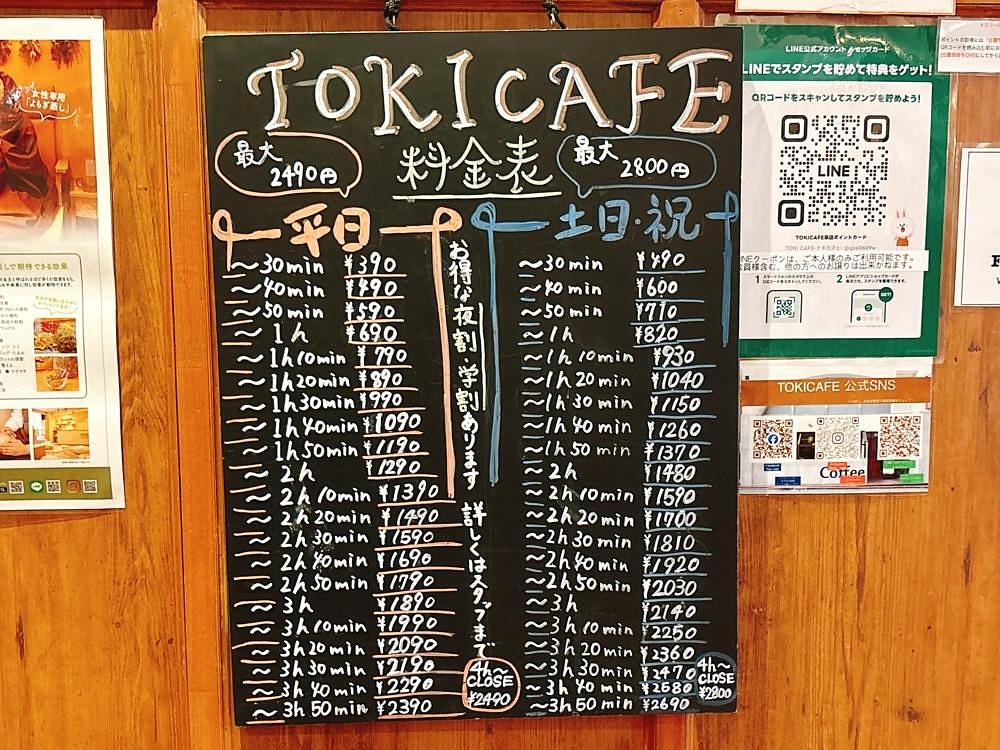 TOKI CAFE
料金表
最大
2490円
最大
2800円
平日
~30min ¥390
~40min ¥490
~50min ¥590
~1h ¥690
~1h10min ¥790
~1h20min ¥890
~1h30min ¥990
~1h40min ¥1090
~1h50min ¥1190
~2h ¥1290
~2h10min ¥1390
~2h20min ¥1490
~2h30min ¥1590
~2h40min ¥1690
~2h50min ¥1790
~3h ¥1890
~3h10min ¥1990
~3h20min ¥2090
~3h30min ¥2190
~3h40min ¥2290
~3h50min ¥2390
4h~
CLOSE
¥2490
お得な夜割・学割あります
詳しくはスタッフまで
土日・祝
~30min ¥490
~40min ¥600
~50min ¥710
~1h ¥820
~1h10min ¥930
~1h20min ¥1040
~1h30min ¥1150
~1h40min ¥1260
~1h50min ¥1370
~2h ¥1480
~2h10min ¥1590
~2h20min ¥1700
~2h30min ¥1810
~2h40min ¥1920
~2h50min ¥2030
~3h ¥2140
~3h10min ¥2250
~3h20min ¥2360
~3h30min ¥2470
~3h40min ¥2580
~3h50min ¥2690
4h~
CLOSE
¥2800
女性専用
「よもぎ蒸し」
LINE公式アカウント ショップカード
LINEでスタンプを貯めて特典をゲット!
QRコードをスキャンしてスタンプを貯めよう!
LINE
TOKICAFE来店ポイントカード
NEクーポンは、ご本人様のみご利用可能です。
員様含む、他の方へのお譲りは出来かねます。
TOKICAFE 公式SNS
Coffee